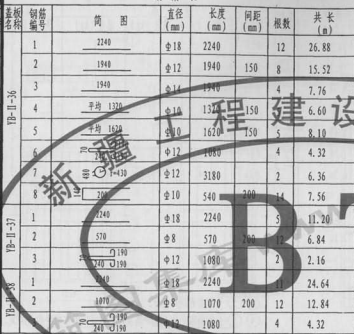 盖板名称 钢筋编号 简 图 直径(mm) 长度(mm) 间距(mm) 根数 共 长(m)
YB-Ⅱ-36
1 2240 Φ18 2240 12 26.88
2 1940 Φ12 1940 150 8 15.52
3 1940 Φ14 1940 4 7.76
4 平均 1320 Φ10 1320 150 5 6.60
5 平均 1620 Φ10 1620 150 5 8.10
6 70 240 Φ12 1080 4 4.32
7 Φ12 3180 2 6.36
8 200 Φ10 540 200 14 7.56
YB-Ⅱ-37
1 2240 Φ18 2240 5 11.20
2 570 Φ8 570 200 12 6.84
3 190 240 190 Φ12 1080 2 2.16
1 2240 Φ18 2240 11 24.64
2 1070 Φ8 1070 200 12 12.84
3 190 240 190 Φ12 1080 4 4.32
新疆工程建设
BT